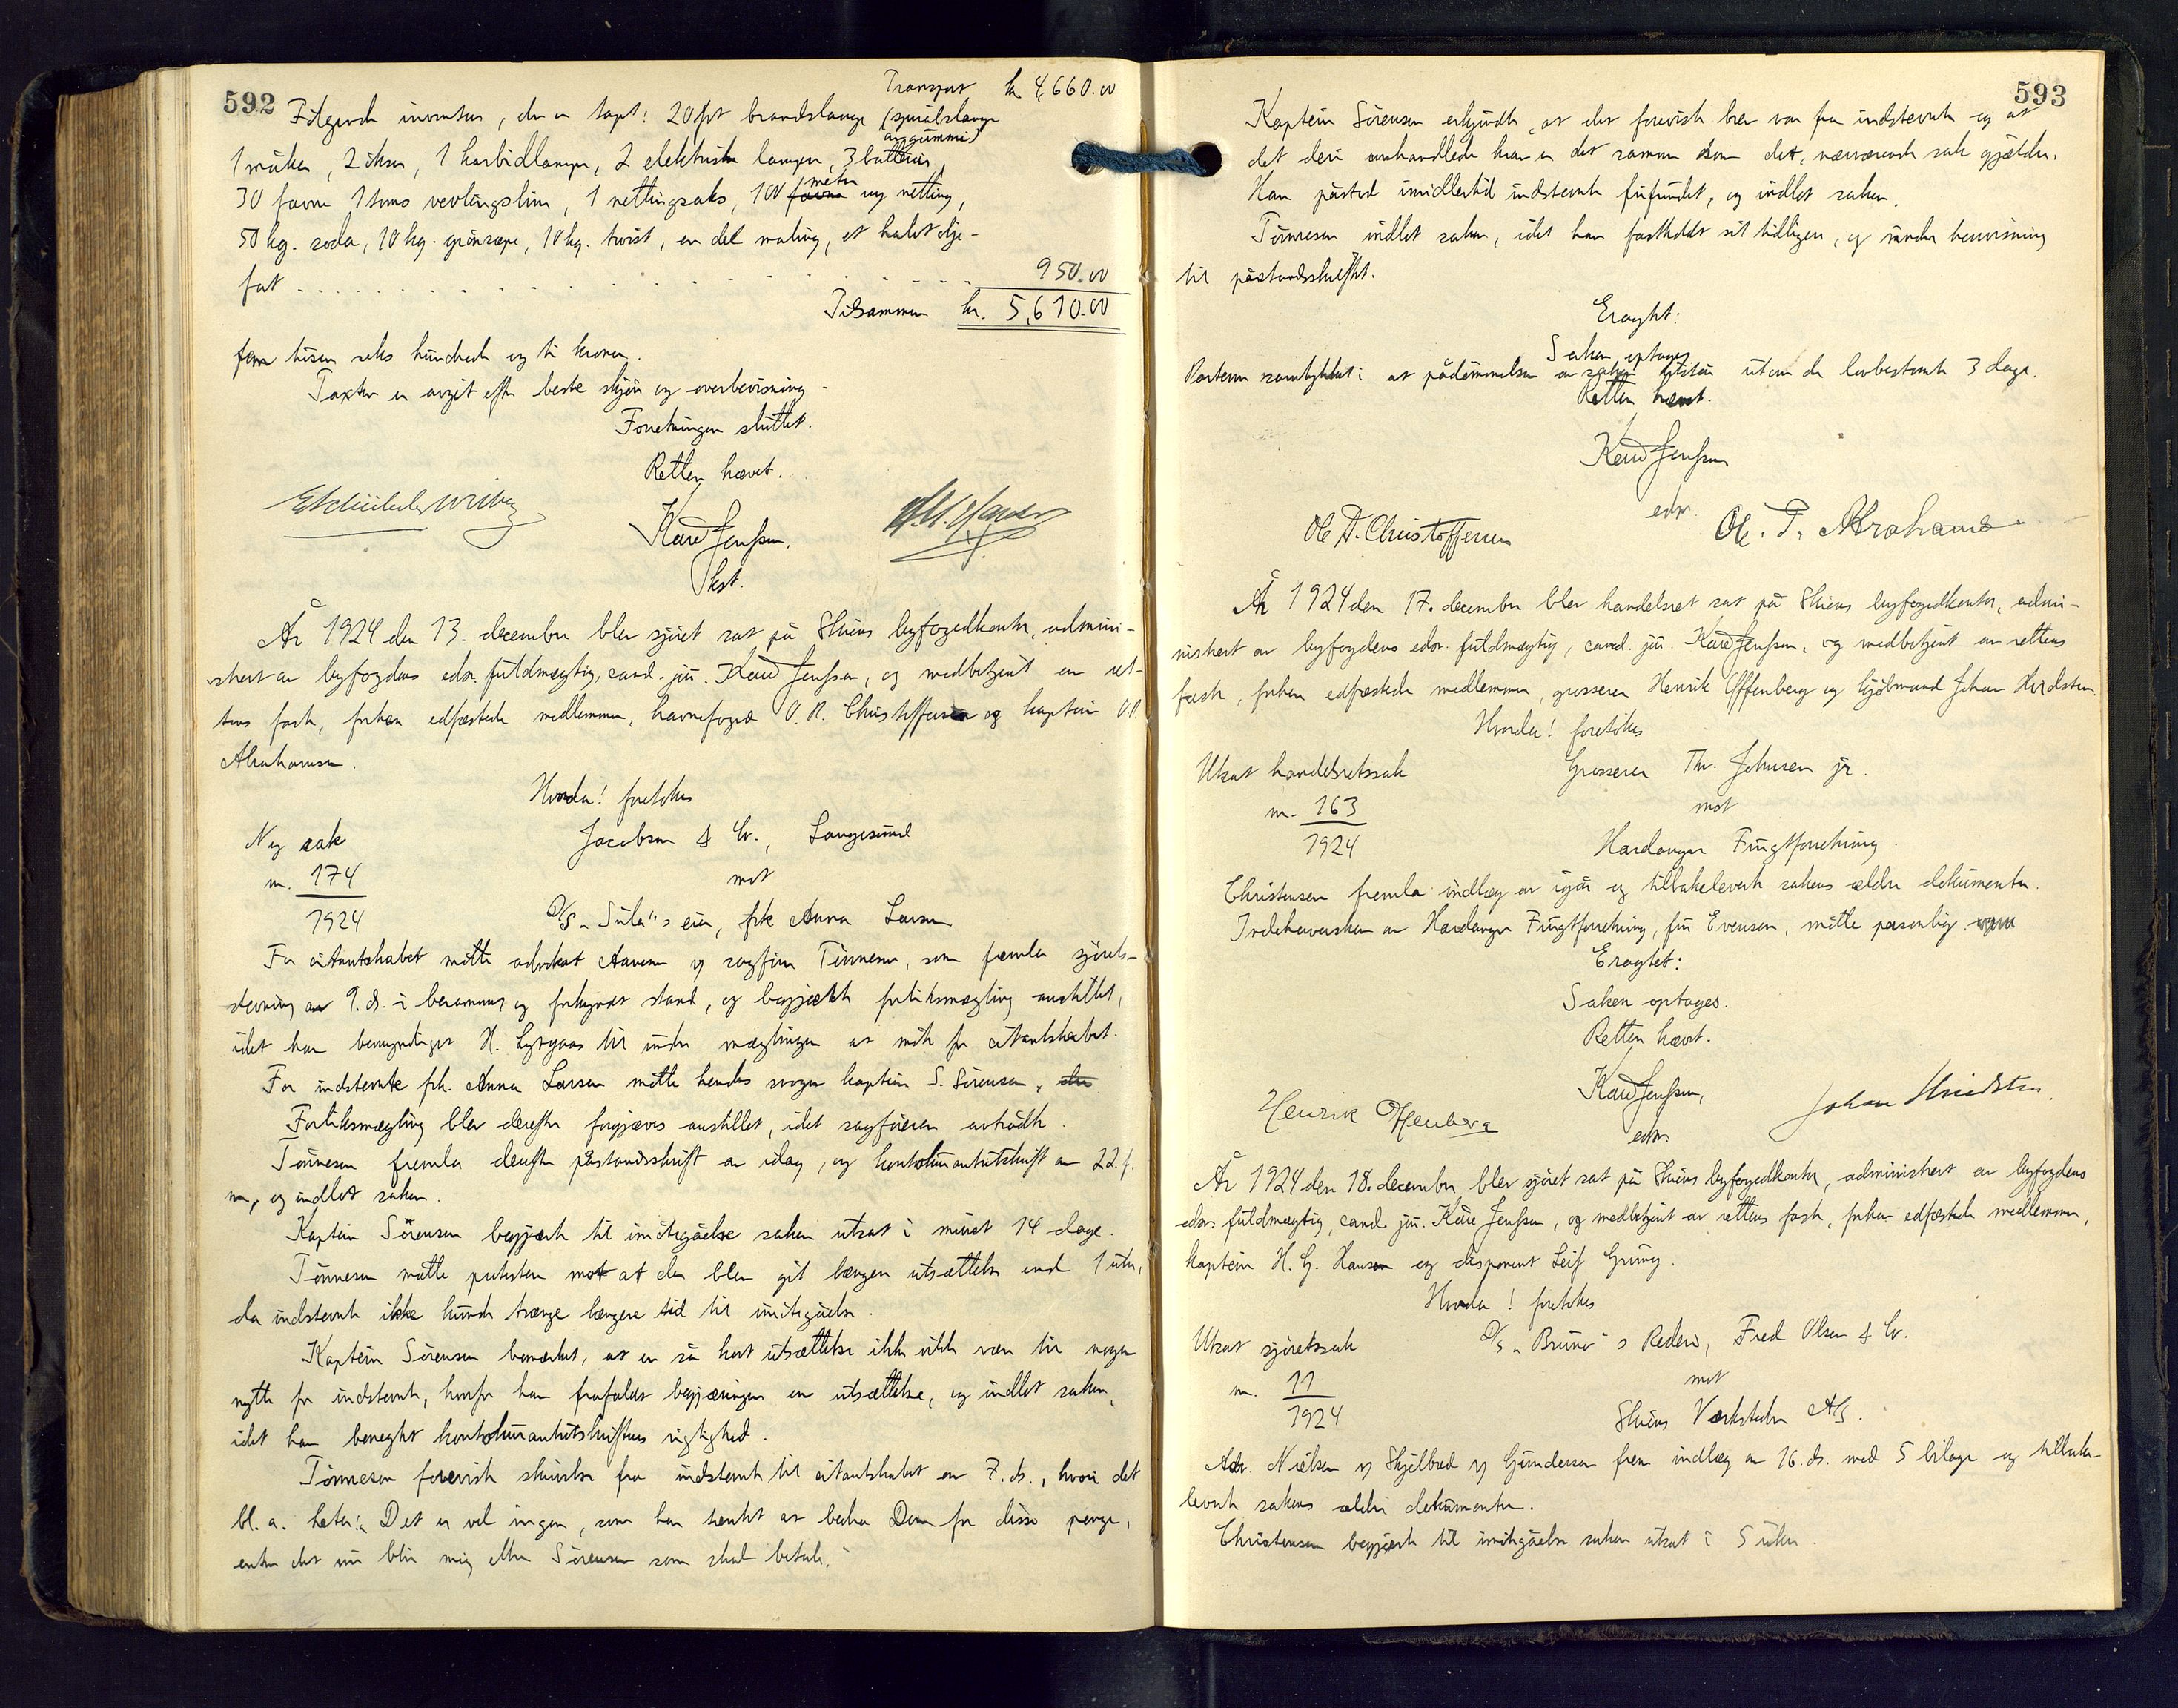 592
Transport kr. 4,660.00
Følgende inventar, der er tapt: 20 fot brandslange (spiralslange
av gummi)
1 måker, 2 økser, 1 karbidlampe, 2 elektriske lamper, 3 batterier,
30 favne 1 toms vevlingsline, 1 nettingsaks, 100 favne meter ny netting,
50 kg. soda, 10 kg. grønsæpe, 10 kg. twist, en del maling, et halvt olje-
fat . . . . . . . . . . 950.00
Tilsammen kr. 5,610.00
fem tusen seks hundrede og ti kroner.
Taxten er avgit efter beste skjøn og overbevisning.
Forretningen sluttet.
Retten hævet.
Kåre Jenssen.
kst.
År 1924 den 13. december blev sjøret sat på Skiens byfogedkontor, admini-
stert av byfogdens edsv. fuldmægtig, cand. jur. Kåre Jenssen, og medbetjent av ret-
tens faste, forhen edfæstede medlemmer, havnefoged O. A. Christoffersen og kaptein O.P.
Abrahamsen.
Hvorda! foretokes
Ny sak
nr. 174
1924
Jacobsen & Co., Langesund
mot
D/S "Sula"s eier, frk Anna Larsen
For citantskabet møtte advokat Aanesen ved sagfører Tønnesen, som fremla sjørets-
stevning av 9. ds. i berammet og forkyndt stand, og begjærte forliksmægling anstillet,
idet han bemyndiget H. Lystgaas til under mæglingen at møte for citantskabet.
For indstevnte frk. Anna Larsen møtte hendes svoger kaptein S. Sørensen, der
Forliksmægling blev derefter forgjæves anstillet, idet sagføreren avtrådte.
Tønnesen fremla derefter påstandsskrift av idag, og kontokurantutskrift av 22. f.
m., og indlot saken.
Kaptein Sørensen begjærte til imøtegåelse saken utsat i minst 14 dage.
Tønnesen måtte protestere mot at der blev git længere utsættelse end 1 uke,
da indstevnte ikke kunde trænge længere tid til imøtegåelse.
Kaptein Sørensen bemerket, at en så kort utsættelse ikke vilde være til nogen
nytte for indstevnte, hvorfor han frafaldt begjæringen om utsættelse, og indlot saken,
idet han benegtet kontokurantutskriftens rigtighed.
Tønnesen foreviste skrivelse fra indstevnte til citantskabet av 7. ds., hvori det
bl. a. heter: "Det er vel ingen, som har tænkt at bedra Dem for disse penge,
enten det nu blir mig eller Sørensen som skal betale."
593
Kaptein Sørensen erkjendte, at det foreviste brev var fra indstevnte og at
det deri omhandlede krav er det samme som det, nærværende sak gjælder.
Han påstod imidlertid indstevnte frifundet, og indlot saken.
Tønnesen indlot saken, idet han fastholdt sit tidligere, og under henvisning
til påstandsskriftet.
Eragtet:
Saken optages
Parterne samtykket i at pådømmelsen av saken utstår utom de lovbestemte 3 dage.
Retten hævet.
Kåre Jenssen
edsv.
Ole A. Christoffersen
Ole. P. Abrahams
År 1924 den 17. december blev handelsret sat på Skiens byfogedkontor, admi-
nistrert av byfogdens edsv. fuldmægtig, cand. jur. Kåre Jenssen, og medbetjent av rettens
faste, forhen edfæstede medlemmer, grosserer Henrik Offenberg og kjøbmand Johan Hvidsten.
Hvorda! foretokes
Utsat handelsretssak
nr. 163
1924
Grosserer Thv. Johnsen jr.
mot
Hardanger Frugtforretning.
Christensen fremla indlæg av igår og tilbakeleverte sakens ældre dokumenter.
Indehaversken av Hardanger Frugtforretning, fru Evensen, møtte personlig.
Eragtet:
Saken optages.
Retten hævet.
Kåre Jenssen,
edsv.
Henrik Offenberg
Johan Hvidsten.
År 1924 den 18. december blev sjøret sat på Skiens byfogedkontor, administrert av byfogdens
edsv. fuldmægtig, cand. jur. Kåre Jenssen, og medbetjent av rettens faste, forhen edfæstede medlemmer,
kaptein H. G. Hansen og disponent Leif Grung.
Hvorda! foretokes
Utsat sjøretssak
nr. 11
1924
D/S "Bruno"s Rederi, Fred Olsen & Co.
mot
Skiens Verksteder A/S.
Adv. Nielsen ved Skjelbred ved Gundersen frem indlæg av 16. ds. med 5 bilage og tilbake-
leverte sakens ældre dokumenter.
Christensen begjærte til imøtegåelse saken utsat i 5 uker.